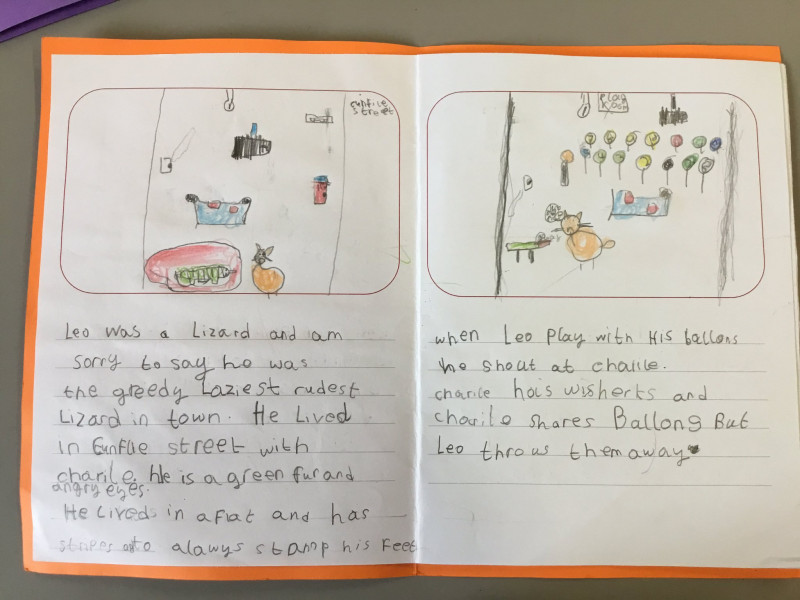 Cunfile
street
Leo was a Lizard and am
sorry to say he was
the greedy Laziest rudest
Lizard in town. He Lived
in Cunflie street with
charile. He is a green fur and
angry eyes.
He Lived in a flat and has
stripes to alawys stamp his Feet
Play
Room
when Leo play with His ballons
he shout at charile.
charile hais wisherts and
charile shares Ballong But
Leo throus them away